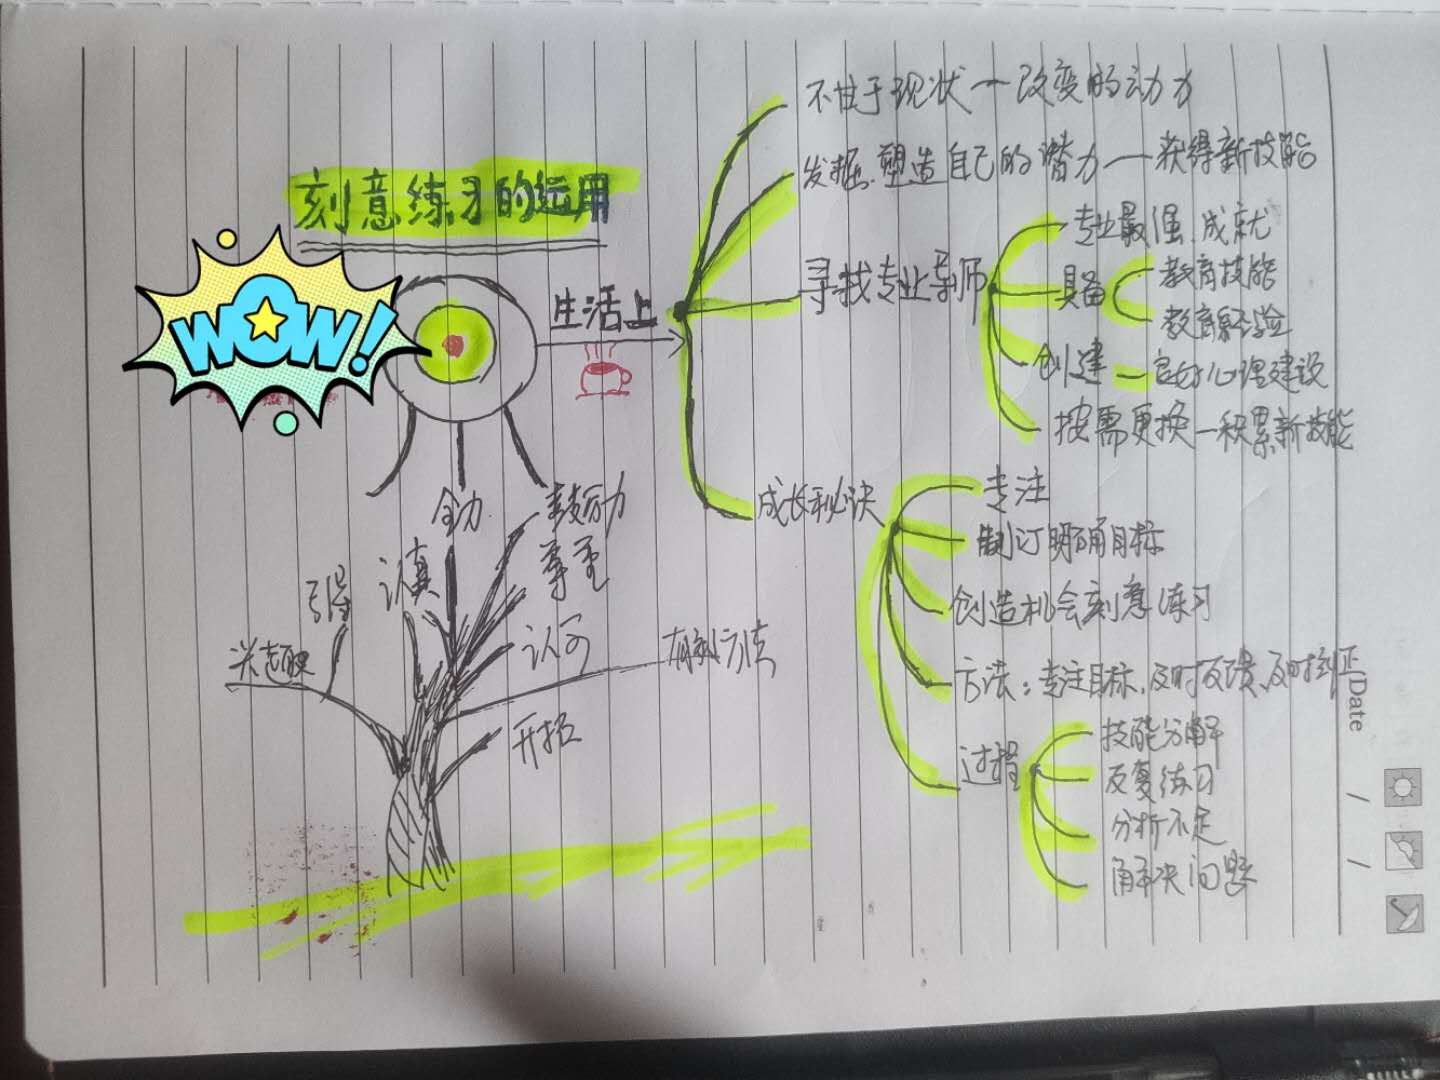 刻意练习的运用
WOW!
生活上
不甘于现状一改变的动力
发掘、塑造自己的潜力一获得新技能
寻找专业导师
专业最强、成就
具备
教育技能
教育经验
创建一良好心理建设
按需更换一积累新技能
成长秘诀
专注
制订明确目标
创造机会刻意练习
方法：专注目标、及时反馈、及时纠正
过程
技能分解
反复练习
分析不足
解决问题
全力
鼓励
尊重
认真
引导
认可
兴趣
有效方法
开拓
Date
/
/